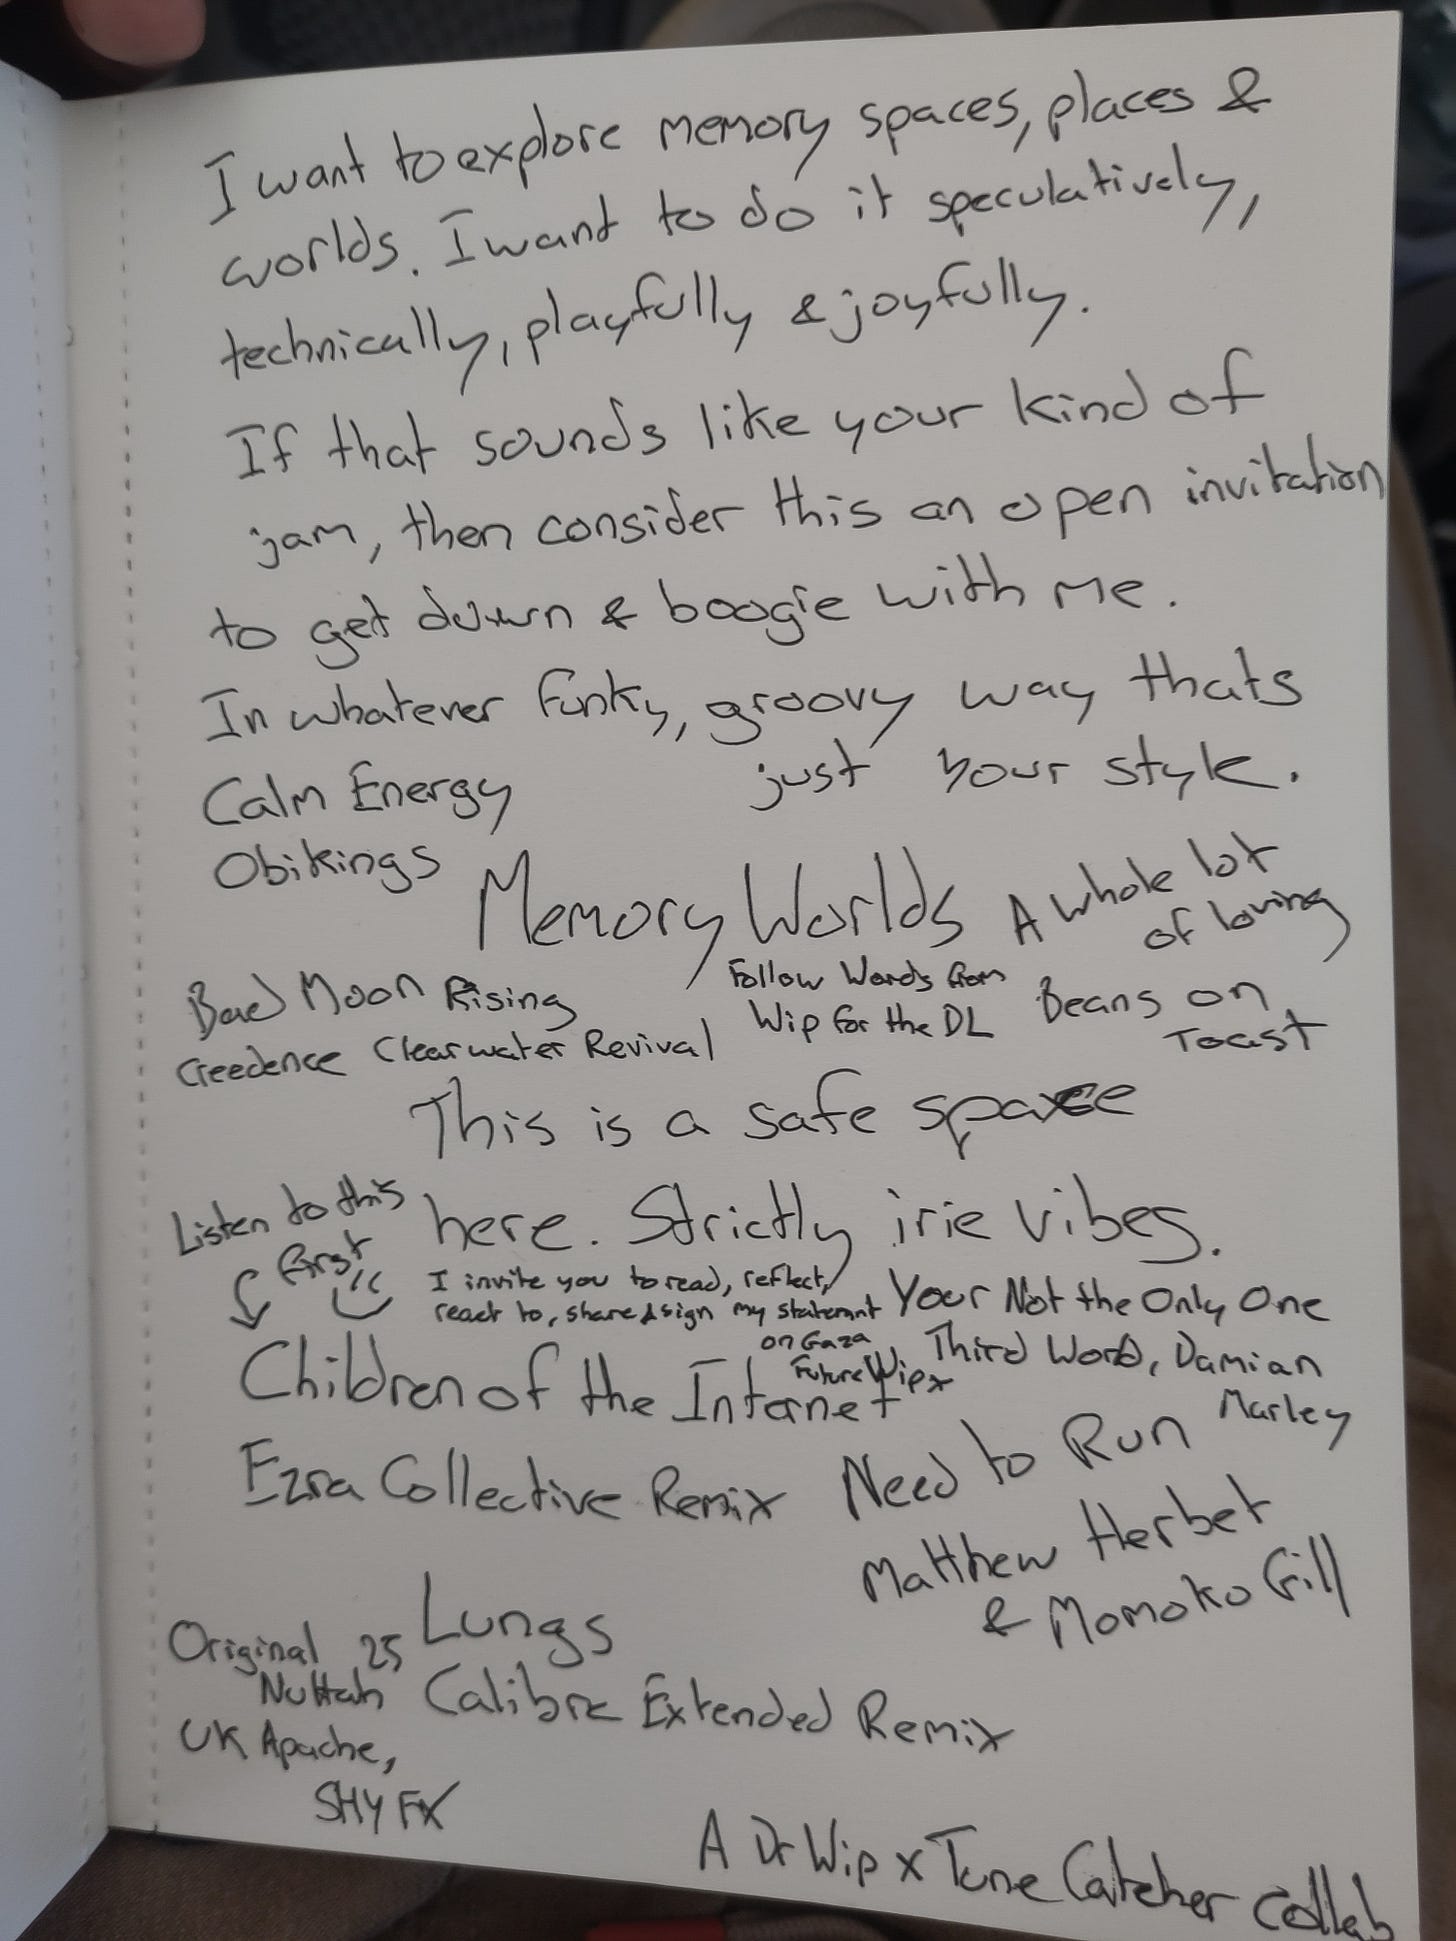 I want to explore memory spaces, places &
worlds. I want to do it speculatively,
technically, playfully & joyfully.
If that sounds like your kind of
jam, then consider this an open invitation
to get down & boogie with me.
In whatever funky, groovy way thats
just your style.
Calm Energy
Obikings
Memory Worlds
A whole lot
of loving
Follow Words from
Wip for the DL
Beans on
Toast
Bad Moon Rising
Creedence Clearwater Revival
This is a safe space
here. Strictly irie vibes.
Listen to this
first
I invite you to read, reflect,
react to, share & sign my statement
on Gaza
Future Wip x
Your Not the Only One
Third World, Damian
Marley
Children of the Internet
Ezra Collective Remix
Need to Run
Matthew Herbet
& Momoko Gill
Lungs
Calibre Extended Remix
Original 25
Nuttah
UK Apache,
SHY FX
A Dr Wip x Tune Catcher collab